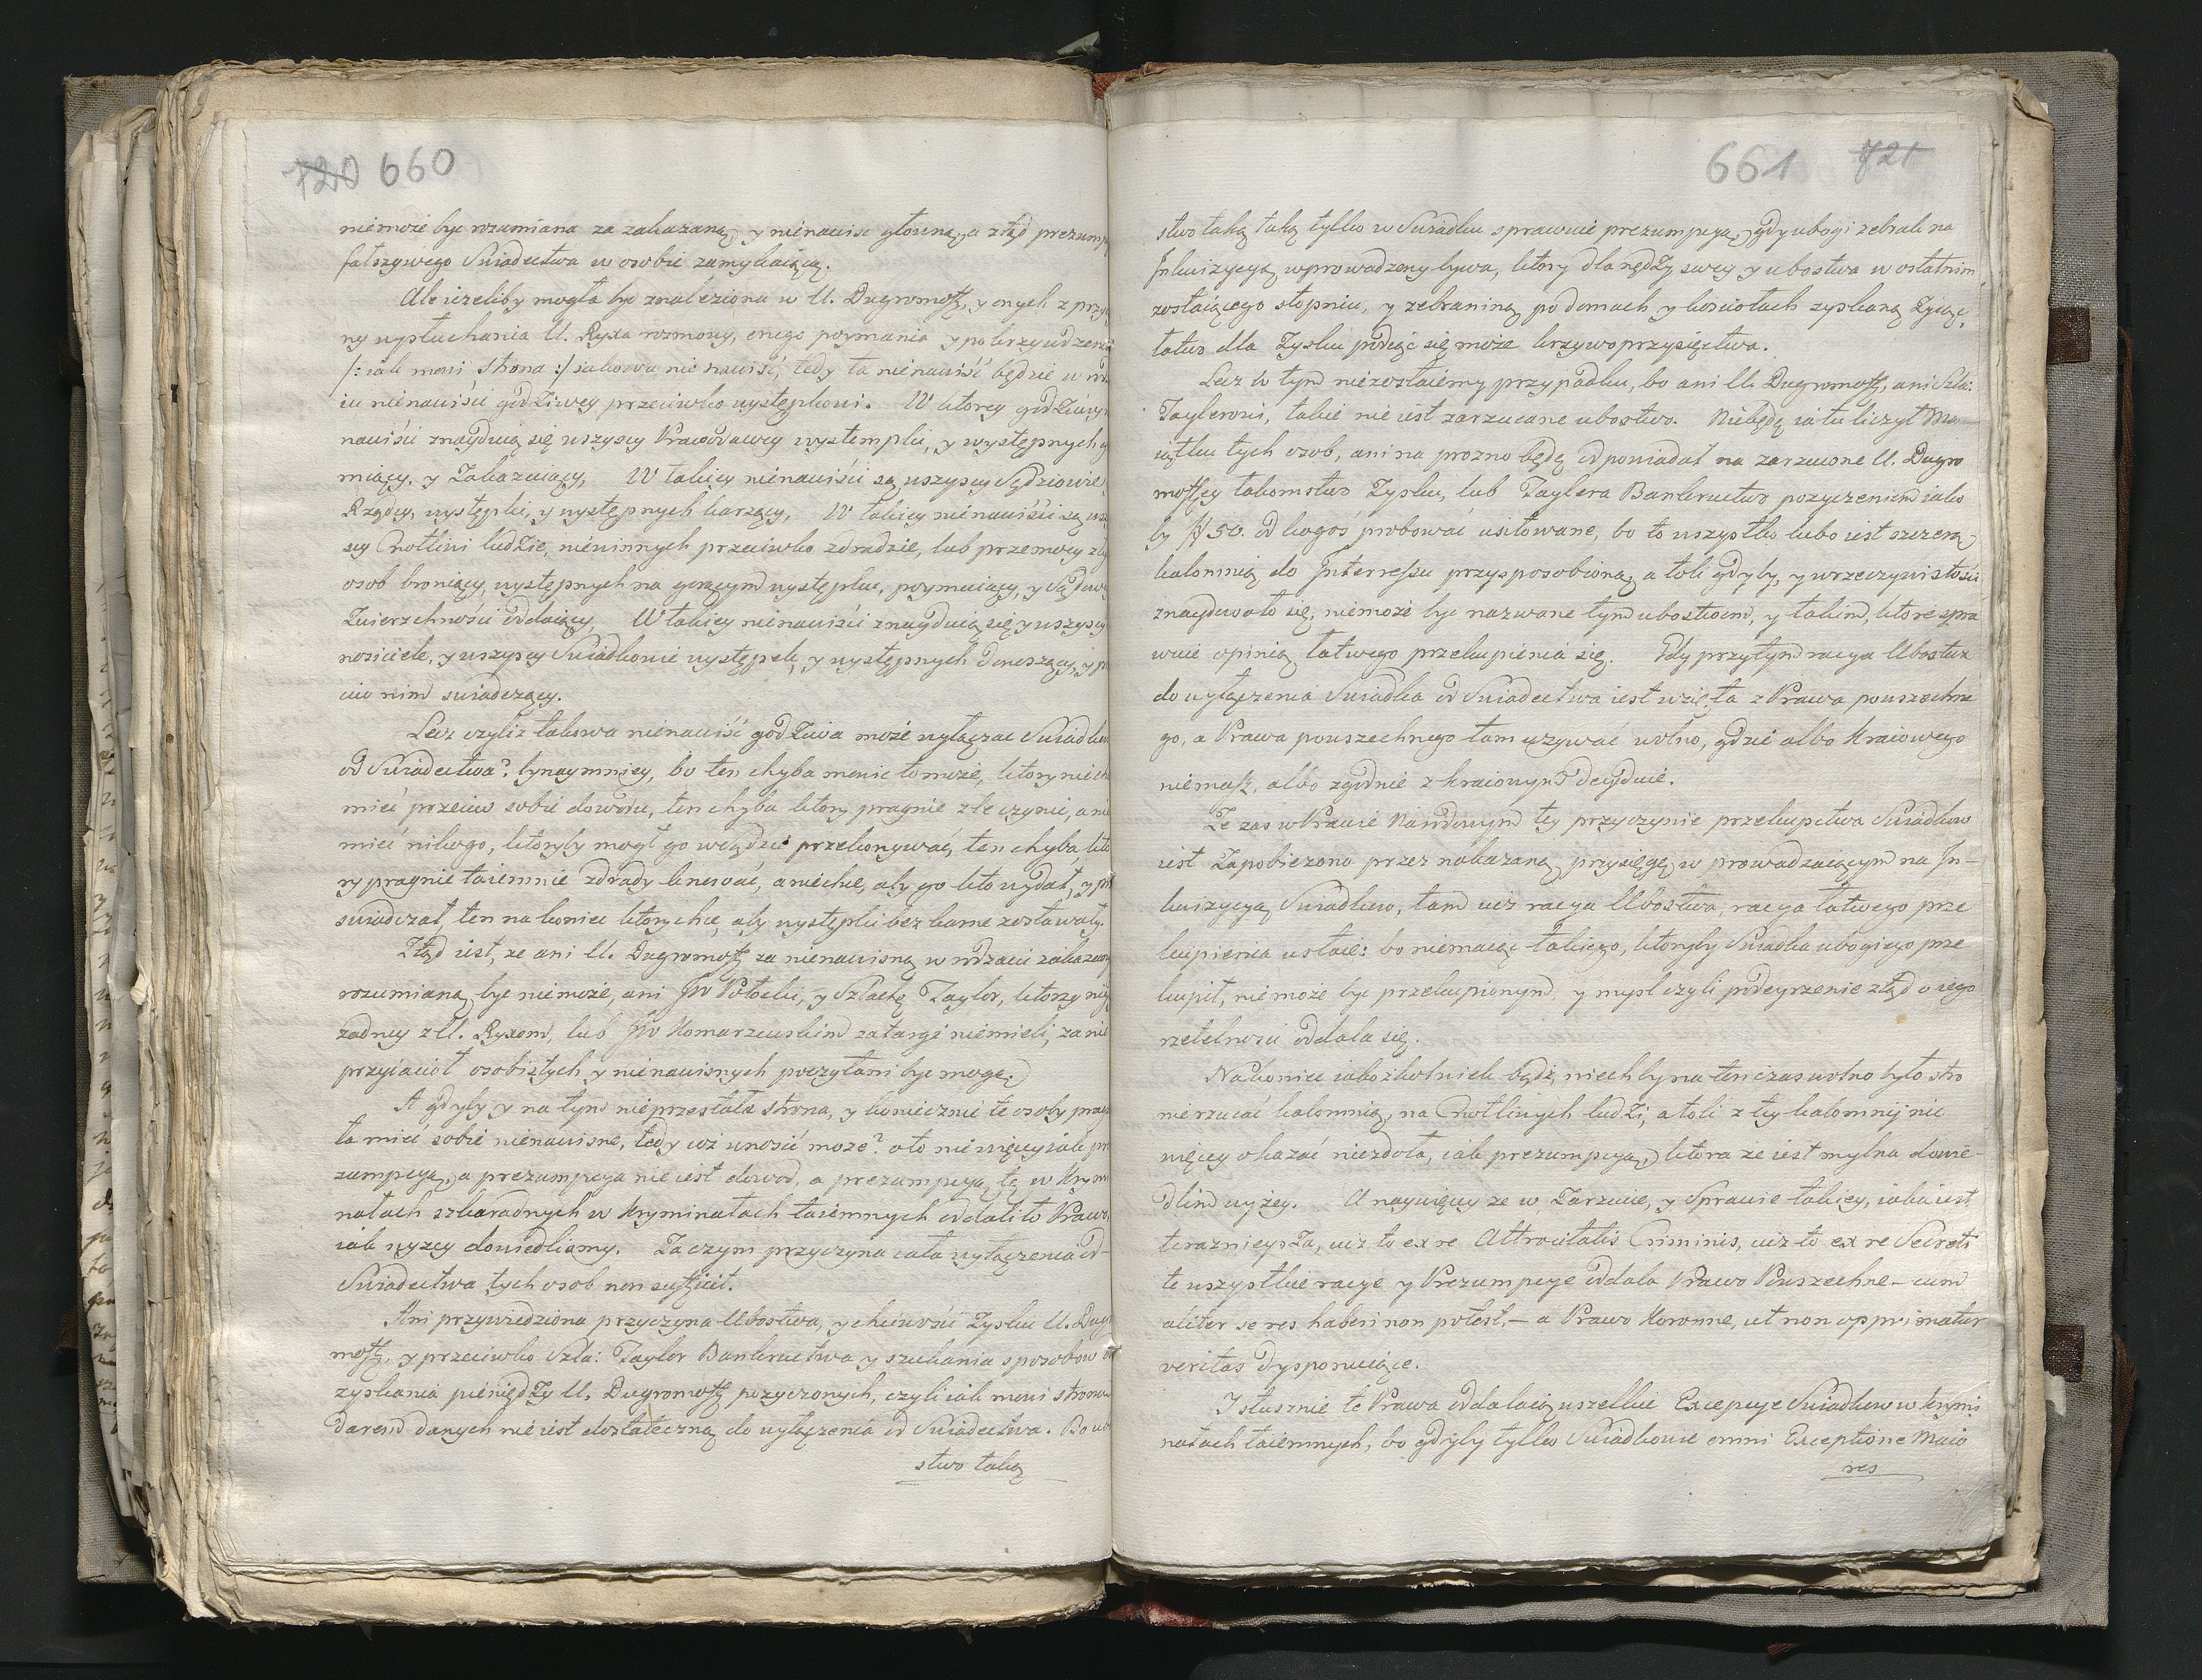 720 660
niemoże byc rozumiana za zakazaną, y nienawisc głowną, a ztąd prezump
fałszywego Swiadectwa w osobie zamykaiącą.
Ale ieżeliby mogła byc znaleziona w U. Dugromoff, y onych z przy
ny wysłuchania U. Ryxa rozmowy, onego poymania y pokrzywdzenia
/: iak mowi Strona :/ iakowa nienawiść, tedy ta nienawiść będzie w rodz
iu nienawiści godziwey przeciwko występkowi. W ktorey godziwey
nawiści znayduią się wszyscy Prawodawcy występki, y występnych
miący, y Zakazuiący, W takiey nienawiści są wszyscy Sędziowie,
Rządcy, występki, y występnych karzący, W takiey nienawiści są wsz
scy Cnotliwi ludzie, niewinnych przeciwko zdradzie, lub przemocy zł
osob broniący, występnych na gorącym występku, poymuiący, y Sądow
Zwierzchności oddaiący, W takiey nienawiści znayduią się y wszyscy
nosiciele, y wszyscy Swiadkowie występek, y występnych donoszący, y p
ciw nim swiadczący.
Lecz czyliż takowa nienawiść godziwa może wyłączac Swiadkow
od Swiadectwa? bynaymniey, bo ten chyba mowic to może, ktory nie ch
mieć przeciw sobie dowodu, ten chyba ktory pragnie złe czynic, a nie
mieć nikogo, ktoryby mogł go w sądzie przekonywać, ten chyba kto
ry pragnie taiemnie zdrady knować, a niechce, aby go kto wydał, y p
swiadczał, ten na koniec ktory chce, aby występki bez karne zostawały.
Ztąd iest, ze ani U. Dugromoff za nienawisną w rodzaiu zakazanym
rozumianą byc niemoże, ani JW Potocki, y Szlachę Taylor, ktorzy nig
zadney z U. Ryxem, lub JW Komarzewskim zatargi niemieli, za nie
przyiacioł osobistych y nienawisnych poczytani byc mogą.
A gdyby y na tym nieprzestała strona, y koniecznie te osoby prag
ła mieć sobie nienawisne, tedy coż wnosić może? oto nic więcey iak pre
zumpcyą, a prezumpcya nie iest dowod, a prezumpcyą tę w Krymi
nałach szkaradnych w Kryminałach taiemnych oddaliło Prawo,
iak wyzey dowiedliśmy. Zaczym przyczyna cała wyłączenia od
Swiadectwa tych osob non sufficit.
Ani przywiedziona przyczyna Ubostwa, y chciwości Zysku U. Dugr
moff, y przeciwko Szla: Taylor Bankructwa y szukania sposobow do
zyskania pieniędzy U. Dugromoff pozyczonych, czyli iak mowi strona
darem danych nie iest dostateczną do wyłączenia od Swiadectwa. Bo ubo
stwo taką
661 721
stwo taką taką tylko w Swiadku sprawuie prezumpcyą, gdy ubogi zebrak na
Inkwizycyą wprowadzony bywa, ktory dla nędzy swey y ubostwa w ostatnim
zostaiącego stopniu, y zebraniną po domach y kościołach zyskaną żyiąc,
łatwo dla Zysku podiąć się może krzywoprzysięztwa.
Lecz w tym niezostaiemy przypadku, bo ani U. Dugromoff, ani Szla:
Taylerowi, takie nie iest zarzucane ubostwo. Niebędę ia tu liczył Ma
iątku tych osob, ani na prozno będę odpowiadał na zarzucone U. Dugro
moffey łakomstwo Zysku, lub Taylera Bankructwo pozyczeniem iako
by # 50. od kogoś probować usiłowane, bo to wszystko lubo iest szczerą
kalomnią do Interessu przysposobioną, a toli gdyby, y wrzeczywistości
znaydowało się, niemoże byc nazwane tym ubostwem, y takim, ktore spra
wuie opinią łatwego przekupienia się. Gdy przytym racya Ubostwa
do wyłączenia Swiadka od Swiadectwa iest wzięta z Prawa powszechne
go, a Prawa powszechnego tam uzywać wolno, gdzie albo Kraiowego
niemasz, albo zgodnie z kraiowym decyduie.
Ze zas w Prawie Narodowym tey przyczynie przekupstwa Swiadkow
iest Zapobieżono przez nakazaną przysięgę w prowadzaiącym na In-
kwizycyą Swiadkow, tam iuż racya Ubostwa, racya łatwego prze
kupienia ustaie: bo niemaiąc takiego, ktoryby Swiadka ubogiego prze
kupił, nie może być przekupionym y mysl czyli podeyrzenie ztąd o iego
rzetelnosci oddala się.
Nakoniec iakożkolwiek bądź, niechby na ten czas wolno było stro
nie rzucać kalomnią, na Cnotliwych ludzi, a toli z tey kalomnij nic
więcey okazać niezdoła, iak prezumpcyą, ktora że iest mylna dowie-
dlim wyżey. A naywięcey ze w Zarzucie, y Sprawie takiey, iaka iest
teraznieysza, iuż to ex re Attrocitatis Criminis, iuż to ex re Secreti
te wszystkie racye y Prezumpcye oddala Prawo Powszechne – cum
aliter se res haberi non potest, – a Prawo Koronne, ut non opprimatur
veritas dysponuiące.
I słusznie te Prawa oddalaią wszelkie Excepcye Swiadkow w krymi
nałach taiemnych, bo gdyby tylko Swiadkowie omni Exceptione Maio
res